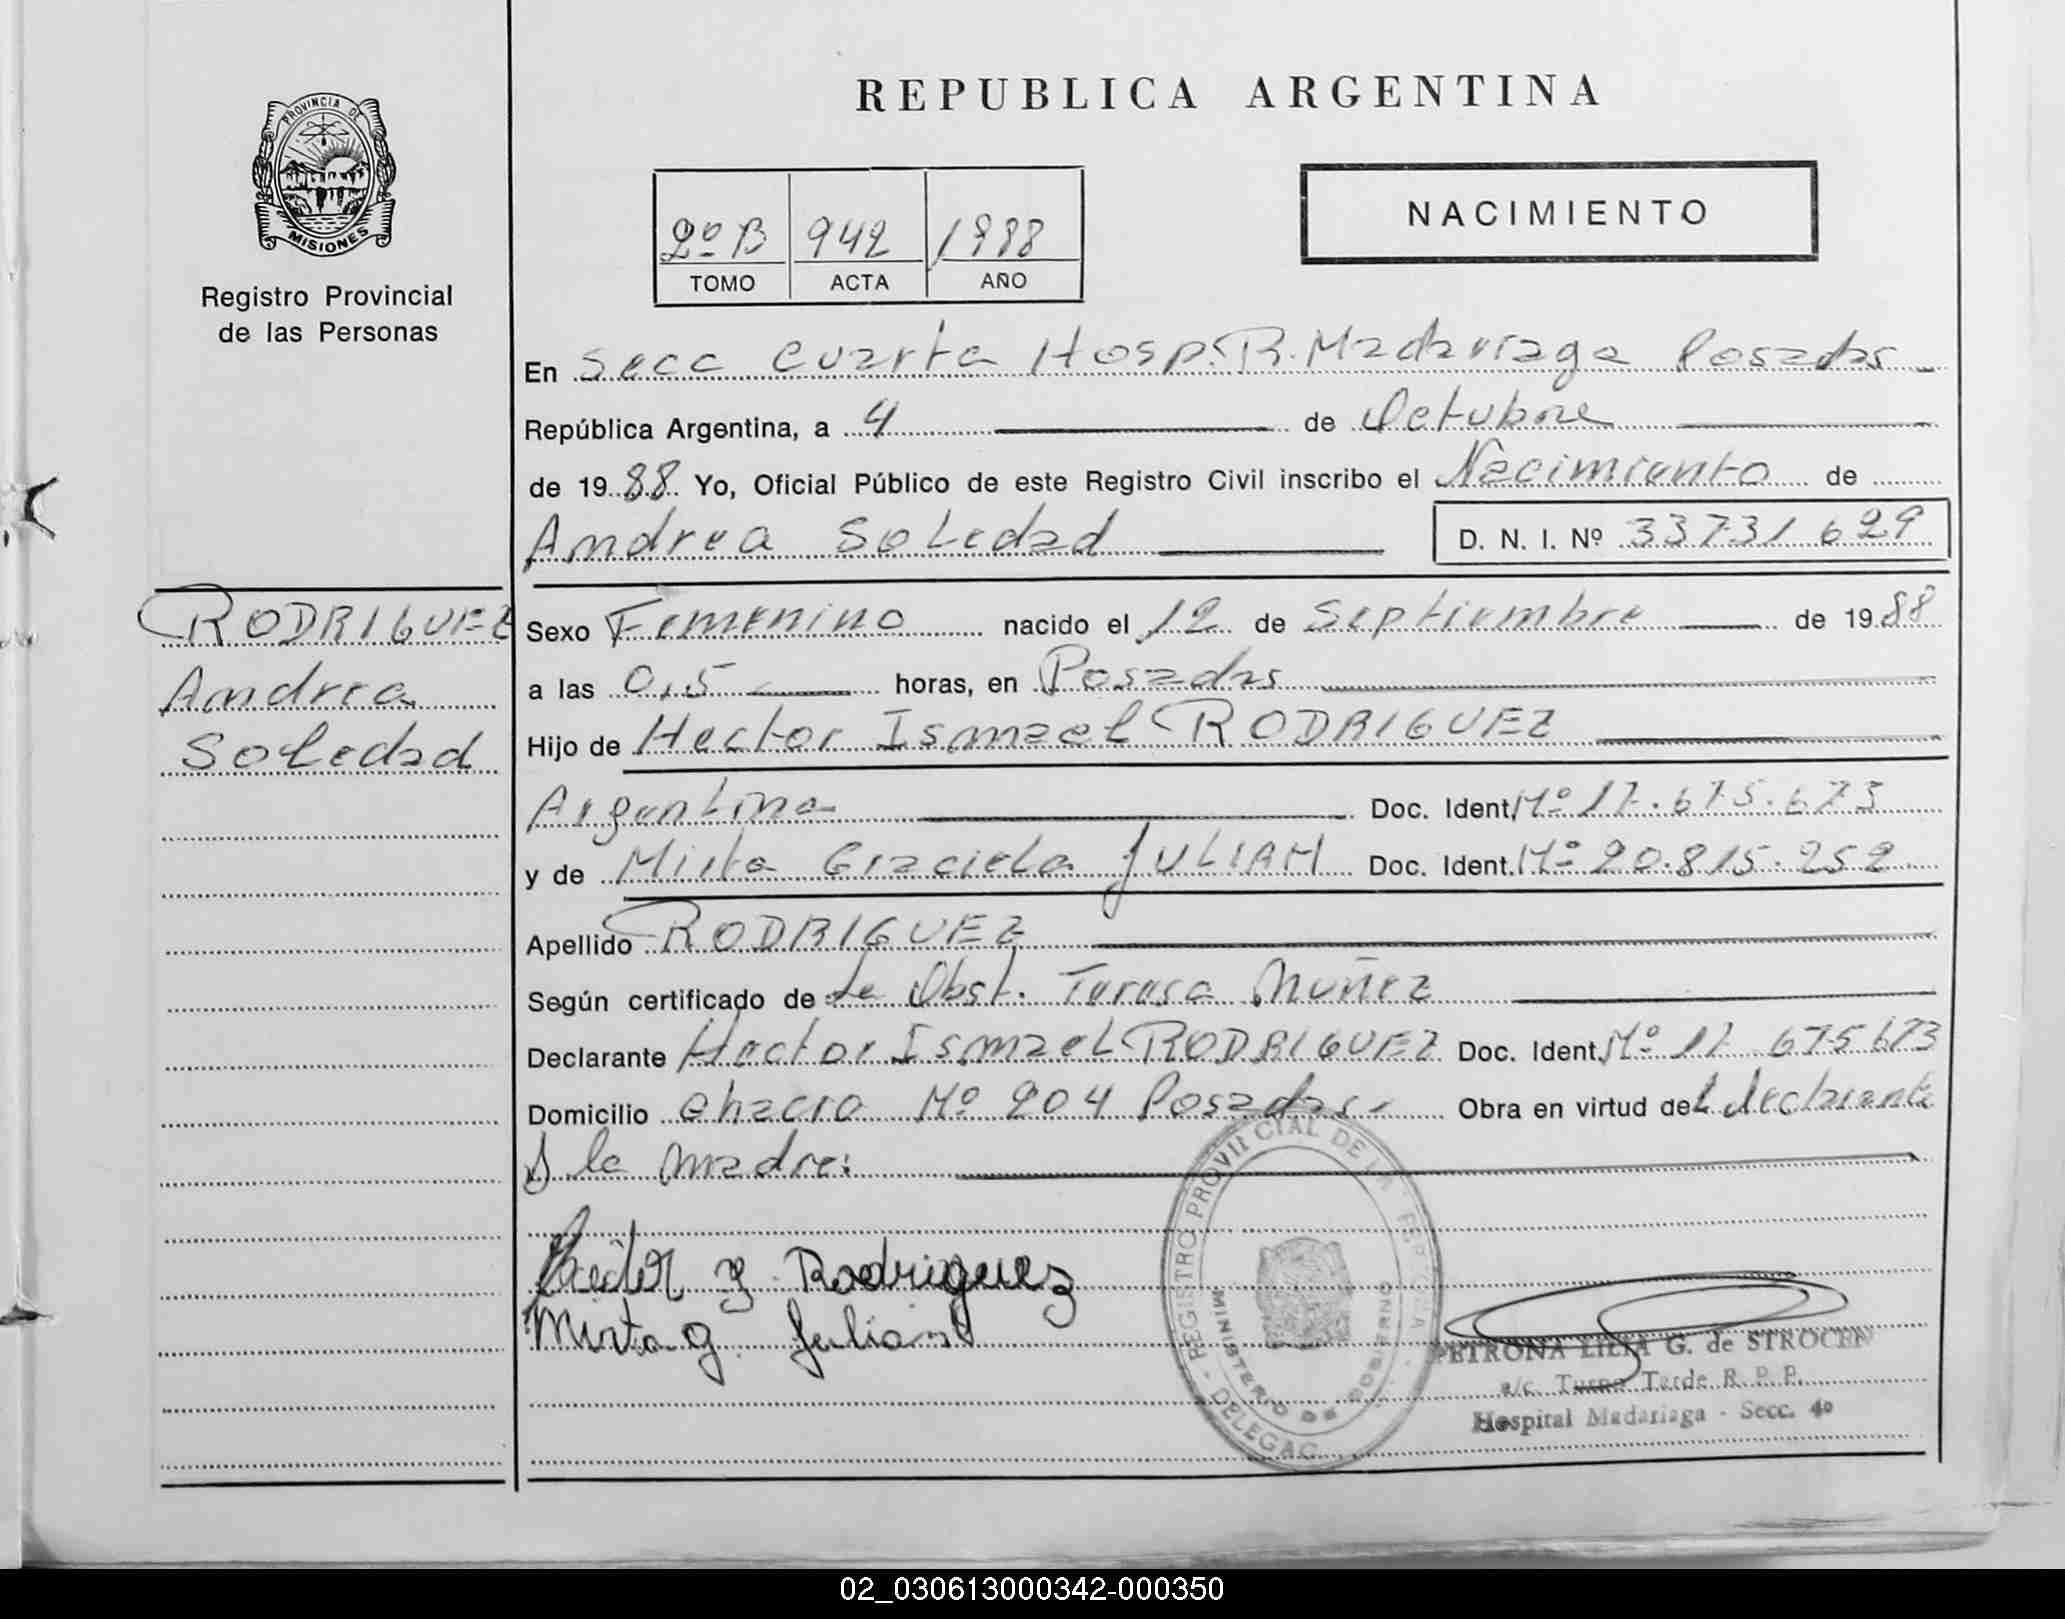 REPUBLICA ARGENTINA
PROVINCIA DE
MISIONES
Registro Provincial
de las Personas
2º B 942 1988
TOMO ACTA AÑO
NACIMIENTO
En Secc Cuarta Hosp. R. Madariaga Posadas
República Argentina, a 4 de Octubre
de 1988 Yo, Oficial Público de este Registro Civil inscribo el Nacimiento de
Andrea Soledad D. N. I. Nº 33731629
RODRIGUEZ
Andrea
Soledad
Sexo Femenino nacido el 12 de Septiembre de 1988
a las 0,5 horas, en Posadas
Hijo de Hector Ismael RODRIGUEZ
Argentina Doc. Ident. Nº 17.675.673
y de Mirta Graciela JULIAN Doc. Ident. Nº 20.815.252
Apellido RODRIGUEZ
Según certificado de La Obst. Teresa Nuñez
Declarante Hector Ismael RODRIGUEZ Doc. Ident. Nº 17 675673
Domicilio chacra Nº 204 Posadas.- Obra en virtud del declarante
y la madre:
Hector I. Rodriguez
Mirta G. Julian
REGISTRO PROVINCIAL DE LAS PERSONAS - DELEGAC.
MINISTERIO DE GOBIERNO
PETRONA LILIA G. de STROCEN
a/c. Turno Tarde R. P. P.
Hospital Madariaga - Secc. 4º
02_030613000342-000350